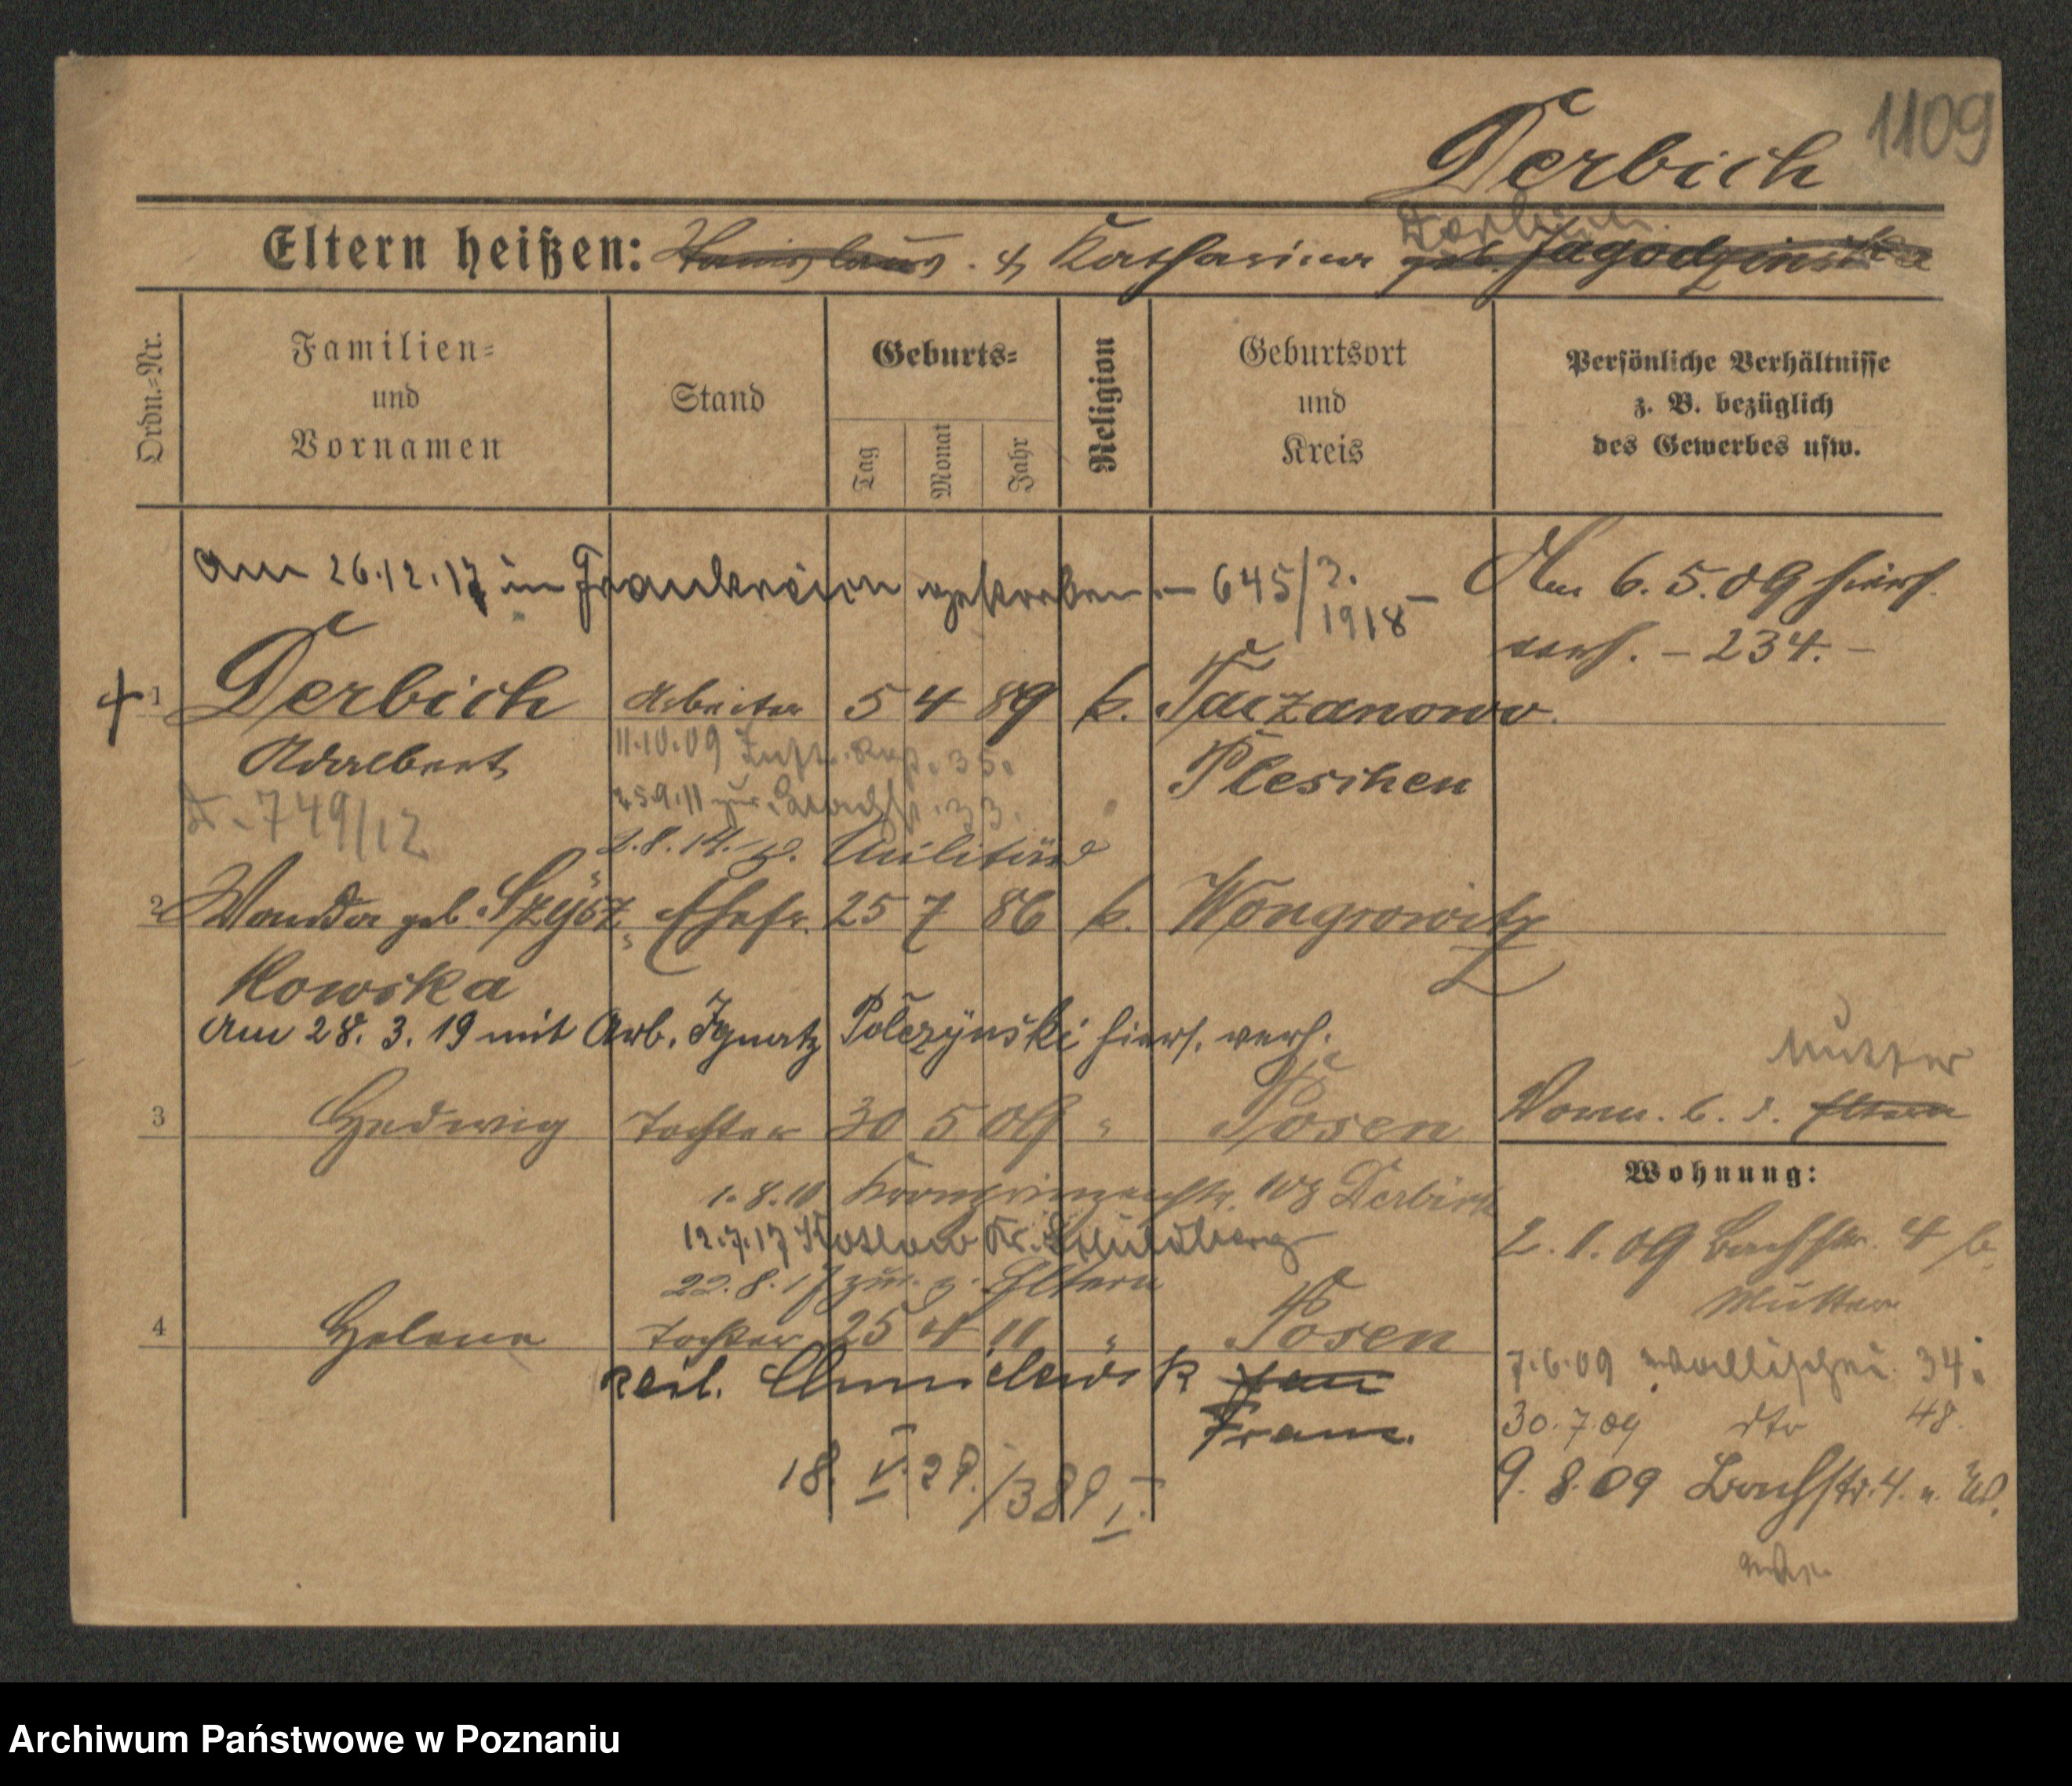 1109
Derbich
Derbich
Eltern heißen: Stanislaus. & Katharina geb. Jagodzinska
Ordn.=Nr.
Familien=
und
Vornamen
Stand
Geburts=
Tag
Monat
Jahr
Religion
Geburtsort
und
Kreis
Persönliche Verhältnisse
z. B. bezüglich
des Gewerbes usw.
Am 26.12.17 in Frankreich gestorben. – 645/2. 1918 –
Am 6.5.09 hiers.
verh. – 234. –
+ 1 Derbich Arbeiter 5 4 89 k. Taczanowo.
11.10.09 35.
Adalbert Pleschen
25.9.11 zur 33.
D. 749/12
2.8.14. z. Militär
2 Wanda geb. Szysz Ehefr. 25 7 86 k. Wongrowitz
kowska
Am 28. 3. 19 mit Arb. Ignatz Polczynski hiers. verh.
Mutter
3 Hedwig Tochter 30 5 09 " Posen
Vorm. b. d. Eltern
Wohnung:
1.8.10 Kronprinzenstr. 108 Derbich
12.7.17 Kotlow Kr. Schildberg
22.8.17 zur. z. Eltern
2.1.09 Bachstr. 4 b.
Mutter
4 Helene Tochter 25 4 11 " Posen
7.6.09 Wallischei 34.
rect. Chmielewsk
Franc.
30.7.09 dto 48.
18. V. 29./389 I.
9.8.09 Bachstr. 4. u. W.